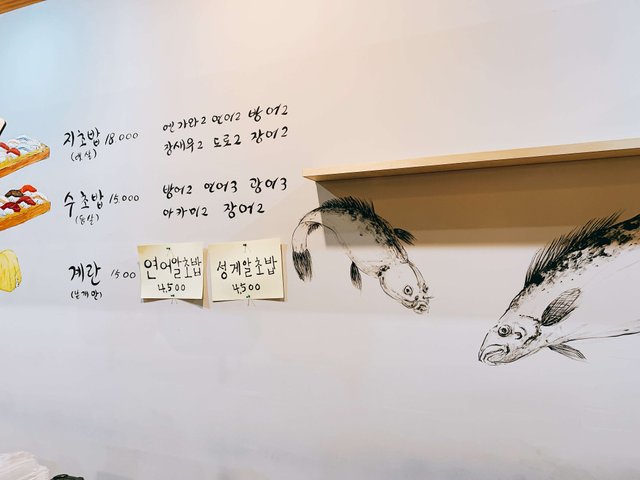 지초밥 18.000 엔가와2 연어2 방어2
(뱃살) 장새우2 도로2 장어2
수초밥 15.000 방어2 연어3 광어3
(등살) 아카미2 장어2
계란 1500
연어알초밥
4,500
성게알초밥
4,500